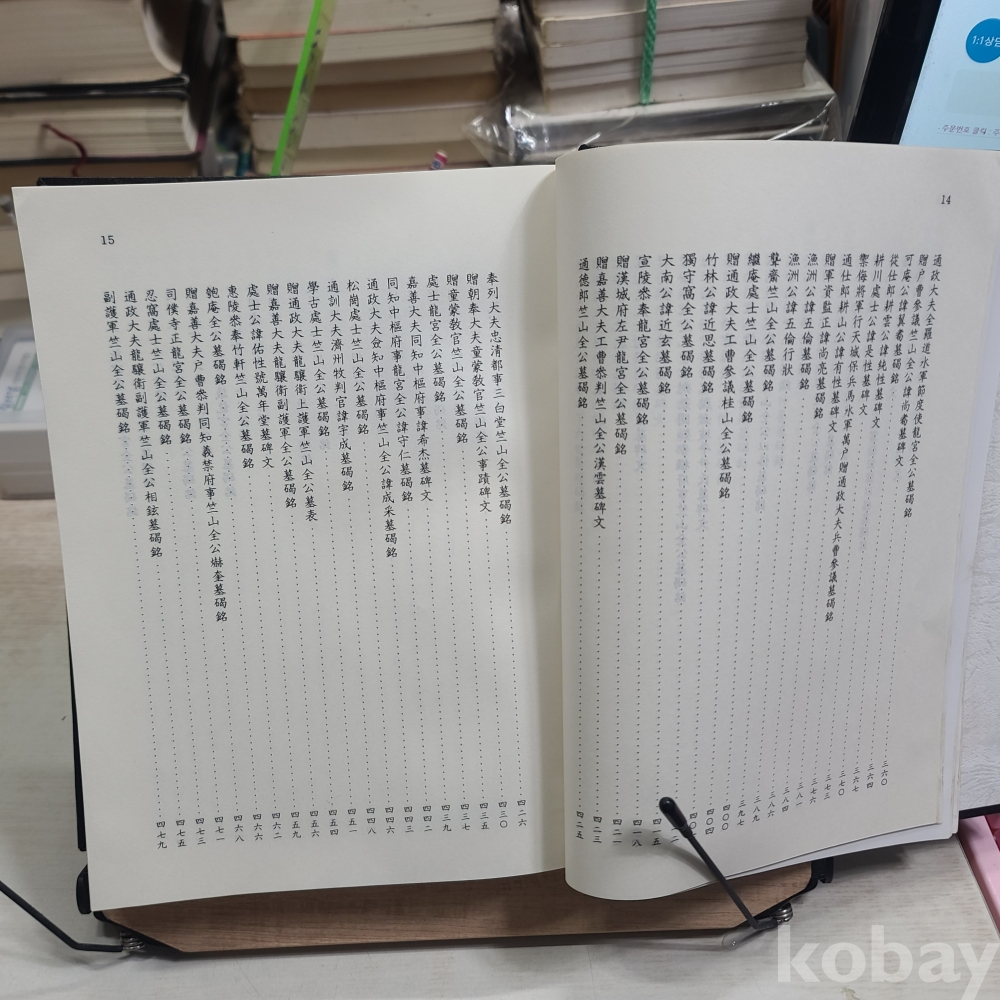 14
通政大夫全羅道水軍節度使龍宮全公墓碣銘 三六〇
贈户曹參議竺山全公諱尚耉墓碑文 三六四
可庵公諱翼耉墓碣銘 三六七
從仕郎耕雲公諱純性墓碑文 三七〇
耕川處士公諱是性墓碑文 三七三
禦侮將軍行天城保兵馬水軍萬户贈通政大夫兵曹參議墓碣銘 三七六
通仕郎耕山公諱有性墓碑文 三八一
贈軍資監正諱尚亮墓碣銘 三八四
漁洲公諱五倫墓碣銘 三八六
漁洲公諱五倫行狀 三八九
聱齋竺山全公墓碣銘 三九七
繼庵處士竺山全公墓碣銘 四〇〇
贈通政大夫工曹參議桂山全公墓碣銘 四〇四
竹林公諱近思墓碣銘 四〇
獨守窩全公墓碣銘 一二
大南公諱近玄墓碣銘 四一五
宣陵叅奉龍宮全公墓碣銘 四一八
贈漢城府左尹龍宮全公墓碣銘 四二一
贈嘉善大夫工曹叅判竺山全公漢雲墓碑文 四二三
通德郎竺山全公墓碣銘 四二五
15
奉列大夫忠清都事三白堂竺山全公墓碣銘 四二六
贈朝奉大夫童蒙敎官竺山全公事蹟碑文 四三〇
贈童蒙敎官竺山全公墓碣銘 四三五
處士龍宮全公墓碣銘 四三七
嘉善大夫同知中樞府事諱希杰墓碑文 四三九
同知中樞府事龍宮全公諱守仁墓碣銘 四四二
通政大夫僉知中樞府事竺山全公諱成采墓碣銘 四四三
松崗處士竺山全公墓碣銘 四四四
通訓大夫濟州牧判官諱宇成墓碣銘 四四八
學古處士竺山全公墓碣銘 四五一
贈通政大夫龍驤衛上護軍竺山全公墓表 四五四
贈嘉善大夫龍驤衛副護軍全公墓碣銘 四五六
處士公諱佑性號萬年堂墓碑文 四五九
惠陵叅奉竹軒竺山全公墓碣銘 四六二
匏庵全公墓碣銘 四六六
贈嘉善大夫户曹叅判同知義禁府事竺山全公爀奎墓碣銘 四六八
司僕寺正龍宮全公墓碣銘 四七一
忍窩處士竺山全公墓碣銘 四七三
通政大夫龍驤衛副護軍竺山全公相鉉墓碣銘 四七五
副護軍竺山全公墓碣銘 四七九
1:1상담
주문번호 클릭
kobay